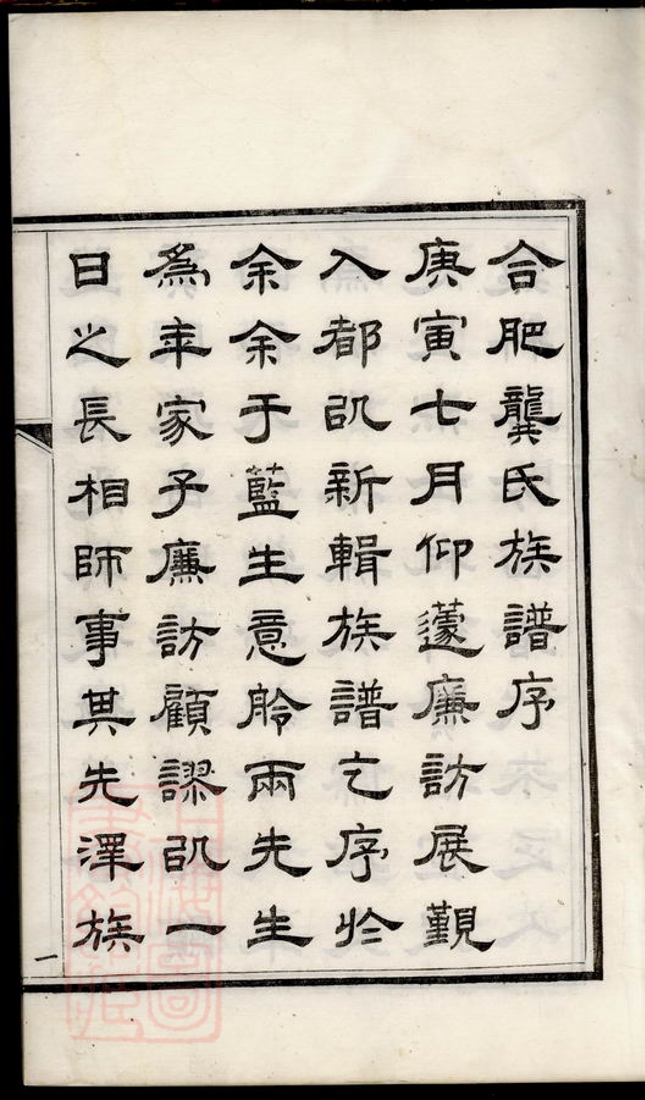 合肥龔氏族譜序
庚寅七月仰蘧廉訪展覲
入都㠯新輯族譜乞序於
余余于藍生意舲兩先生
為年家子廉訪顧謬㠯一
日之長相師事其先澤族
一